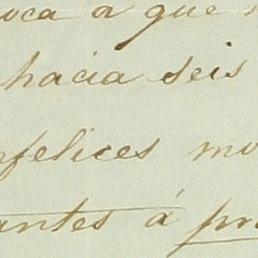 oca a que
hacia seis
nfelices mo
antes á pr